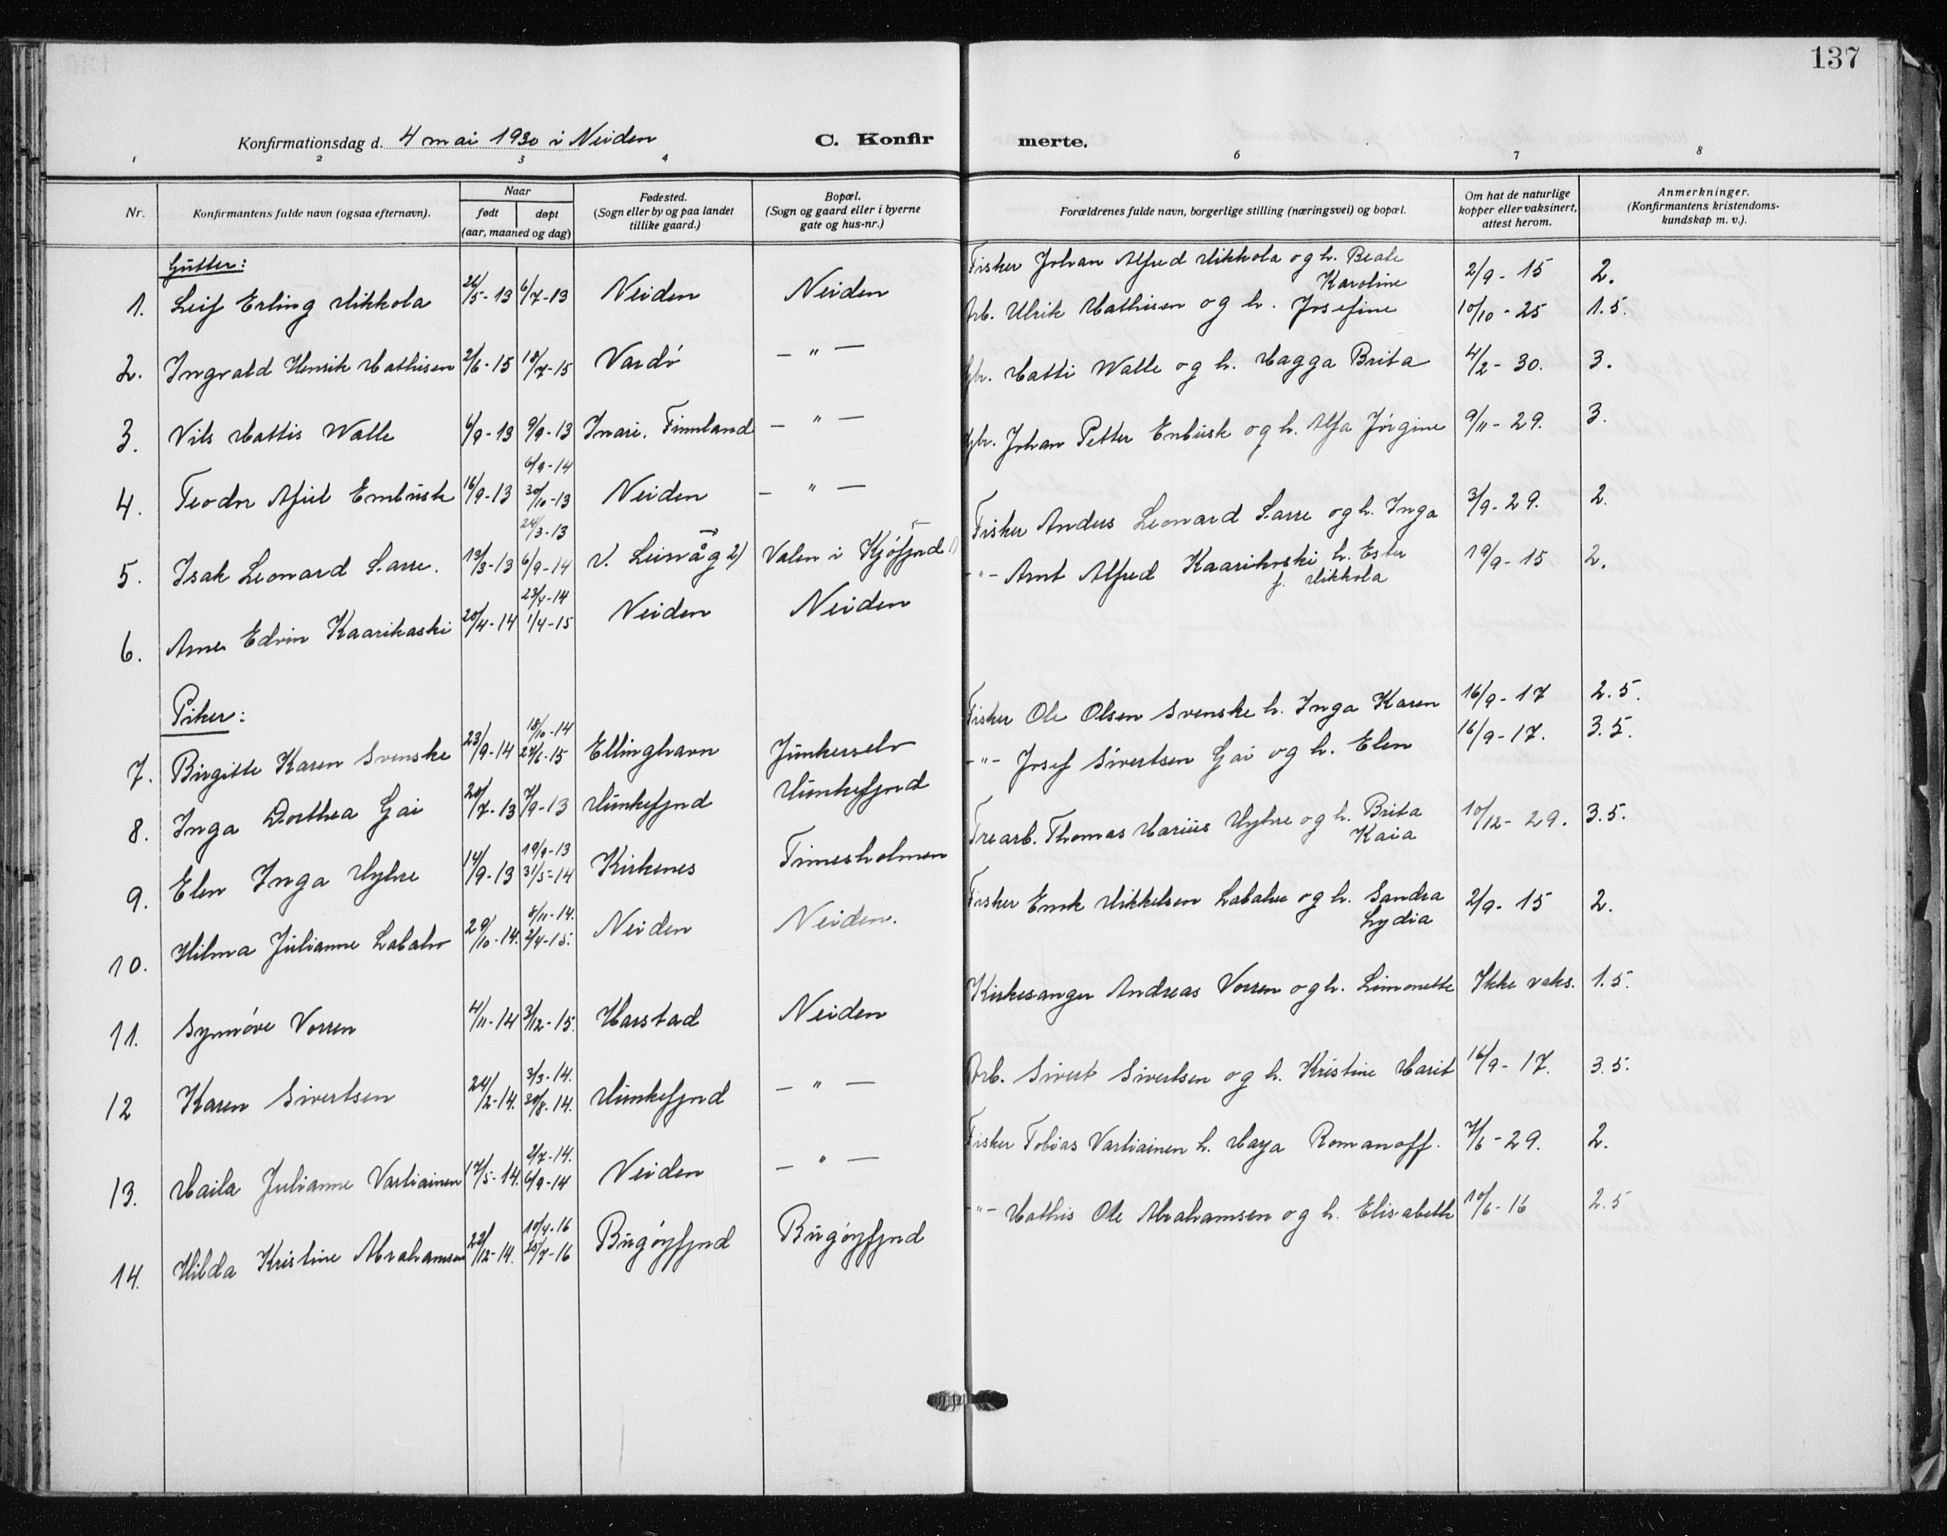 137
Konfirmationsdag d. 4 mai 1930 i Neiden C. Konfirmerte.
1 2 3 4 6 7 8
Nr. | Konfirmantens fulde navn (ogsaa efternavn). | Naar født | døpt (aar, maaned og dag) | Fødested. (Sogn eller by og paa landet tillike gaard.) | Bopæl. (Sogn og gaard eller i byerne gate og hus-nr.) | Forældrenes fulde navn, borgerlige stilling (næringsvei) og bopæl. | Om hat de naturlige kopper eller vaksinert, attest herom. | Anmerkninger. (Konfirmantens kristendoms-kundskap m. v.).
Gutter:
1. Leif Erling Mikkola | 26/5-13 | 6/7-13 | Neiden | Neiden | Fisker Johan Alfred Mikkola og h. Beate Karoline | 2/9-15 | 2.
2. Ingvald Henrik Mathisen | 2/6-15 | 18/7-15 | Vardö | – " – | Arb. Ulrik Mathisen og h. Josefine | 10/10-25 | 1.5.
3. Nils Mattis Walle | 6/9-13 | 9/9-13 | Inari. Finnland | – " – | Gbr. Matti Walle og h. Magga Brita | 4/2-30. | 3.
4. Teodor Afiel Embusk | 16/9-13 | 6/9-14 30/10-13 | Neiden | – " – | Gbr. Johan Petter Enbusk og h. Alfa Jörgine | 9/11-29. | 3.
5. Isak Leonard Sarre. | 13/3-13 | 24/3-13 6/9-14 | V. Leirvåg 2) | Valen i Kjöfjord 1) | Fisker Anders Leonard Sarre og h. Inga | 3/9-29. | 2.
6. Arne Edvin Kaarikoski | 20/4-14 | 23/4-14 1/4-15 | Neiden | Neiden | –"– Arnt Alfred Kaarikoski h. Ester f. Mikkola | 19/9-15 | 2.
Piker:
7. Birgitte Karen Svenske | 23/9-14 | 18/10-14 24/6-15 | Ellinghavn | Junkerselv | Fisker Ole Olsen Svenske h. Inga Karen | 16/9-17 | 2.5.
8. Inga Dorthea Gai | 20/7-13 | 7/9-13 | Munkefjord | Munkefjord | –"– Josef Sivertsen Gai og h. Elen | 16/9-17. | 3.5.
9. Elen Inga Myhre | 14/9-13 | 19/9-13 31/5-14 | Kirkenes | Timesholmen | Trearb. Thomas Marius Myhre og h. Brita Kaia | 10/12-29. | 3.5.
10. Hilma Julianne Labahn | 29/10-14. | 8/11-14. 2/4-15. | Neiden | Neiden. | Fisker Emk Mikkelsen Labahn og h. Sandra Lydia | 2/9-15 | 2.
11. Synnöve Vorren | 4/11-14 | 3/12-15. | Harstad | Neiden | Kirkesanger Andreas Vorren og h. Limonette | Ikke vaks. | 1.5.
12 Karen Sivertsen | 24/2-14. | 3/3-14. 30/8-14. | Munkefjord | – " – | Arb. Sivert Sivertsen og h. Kristine Marit | 16/9-17. | 3.5.
13. Maila Julianne Vartiainen | 17/5-14. | 2/7-14. 6/9-14 | Neiden | – " – | Fisker Tobias Vartiainen h. Maya Romanoff. | 7/6-29. | 2.
14. Hilda Kristine Abrahamsen | 22/12-14. | 10/4-16 25/7-16 | Bugöyfjord | Bugöyfjord | –"– Mathis Ole Abrahamsen og h. Elisabeth | 10/6-16 | 2.5